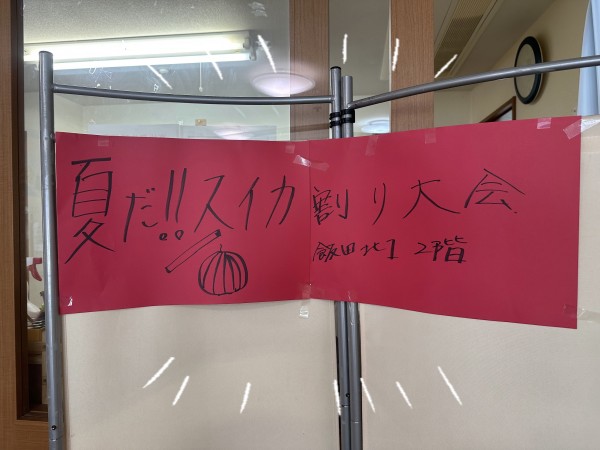 夏だ!!スイカ割り大会
飯田北1 2階